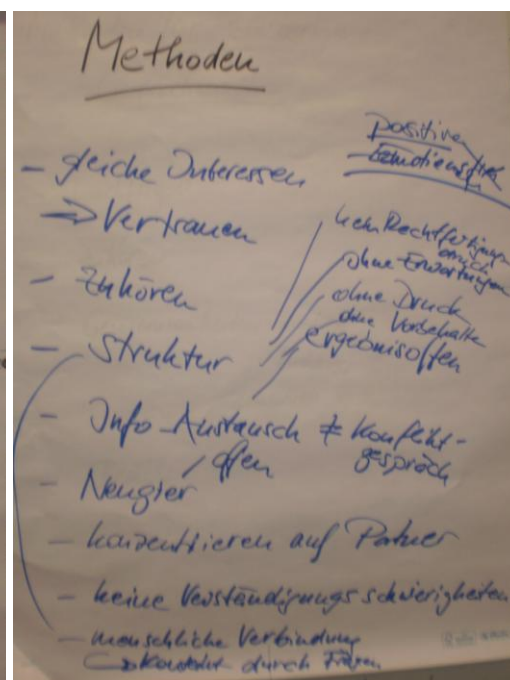 Methoden
positive
Emotionsfrei
- gleiche Interessen
⇒ Vertrauen
kein Rechtfertigungs
druck
ohne Erwartungen
ohne Druck
ohne Vorbehalte
ergebnisoffen
- Zuhören
- Struktur
- Info-Austausch ≠ Konflikt-
gespräch
offen
- Neugier
- konzentrieren auf Patner
- keine Verständigungsschwierigkeiten
- menschliche Verbindung
durch Fragen